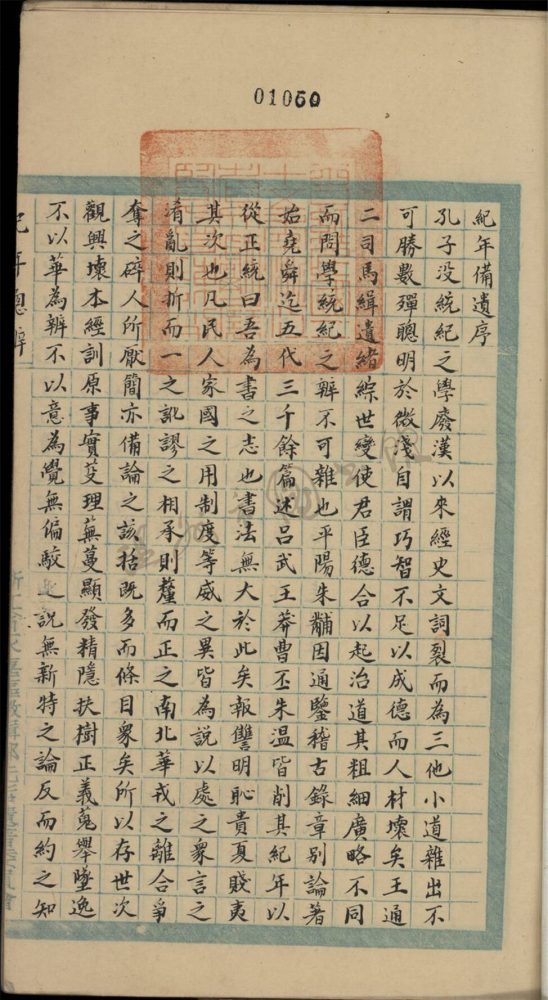 01060
紀年備遺序
孔子没統紀之學廢漢以來經史文詞裂而為三他小道雜出不
可勝數殫聰明於微淺自謂巧智不足以成德而人材壞矣王通
二司馬緝遺緒綜世變使君臣德合以起治道其粗細廣略不同
而問學統紀之辨不可雜也平陽朱黼因通鑒稽古錄章别論著
始堯舜迄五代三千餘篇述吕武王莽曹丕朱温皆削其紀年以
從正統曰吾為書之志也書法無大於此矣報讎明恥貴夏賤夷
其次也凡民人家國之用制度等威之異皆為說以處之衆言之
淆亂則折而一之訛謬之相承則釐而正之南北華戎之離合爭
奪之碎人所厭簡亦備論之該括既多而條目衆矣所以存世次
觀興壞本經訓原事實芟理蕪蔓顯發精隱扶樹正義蒐舉墜逸
不以華為辨不以意為覺無偏駮之説無新特之論反而約之知
紀年總辨